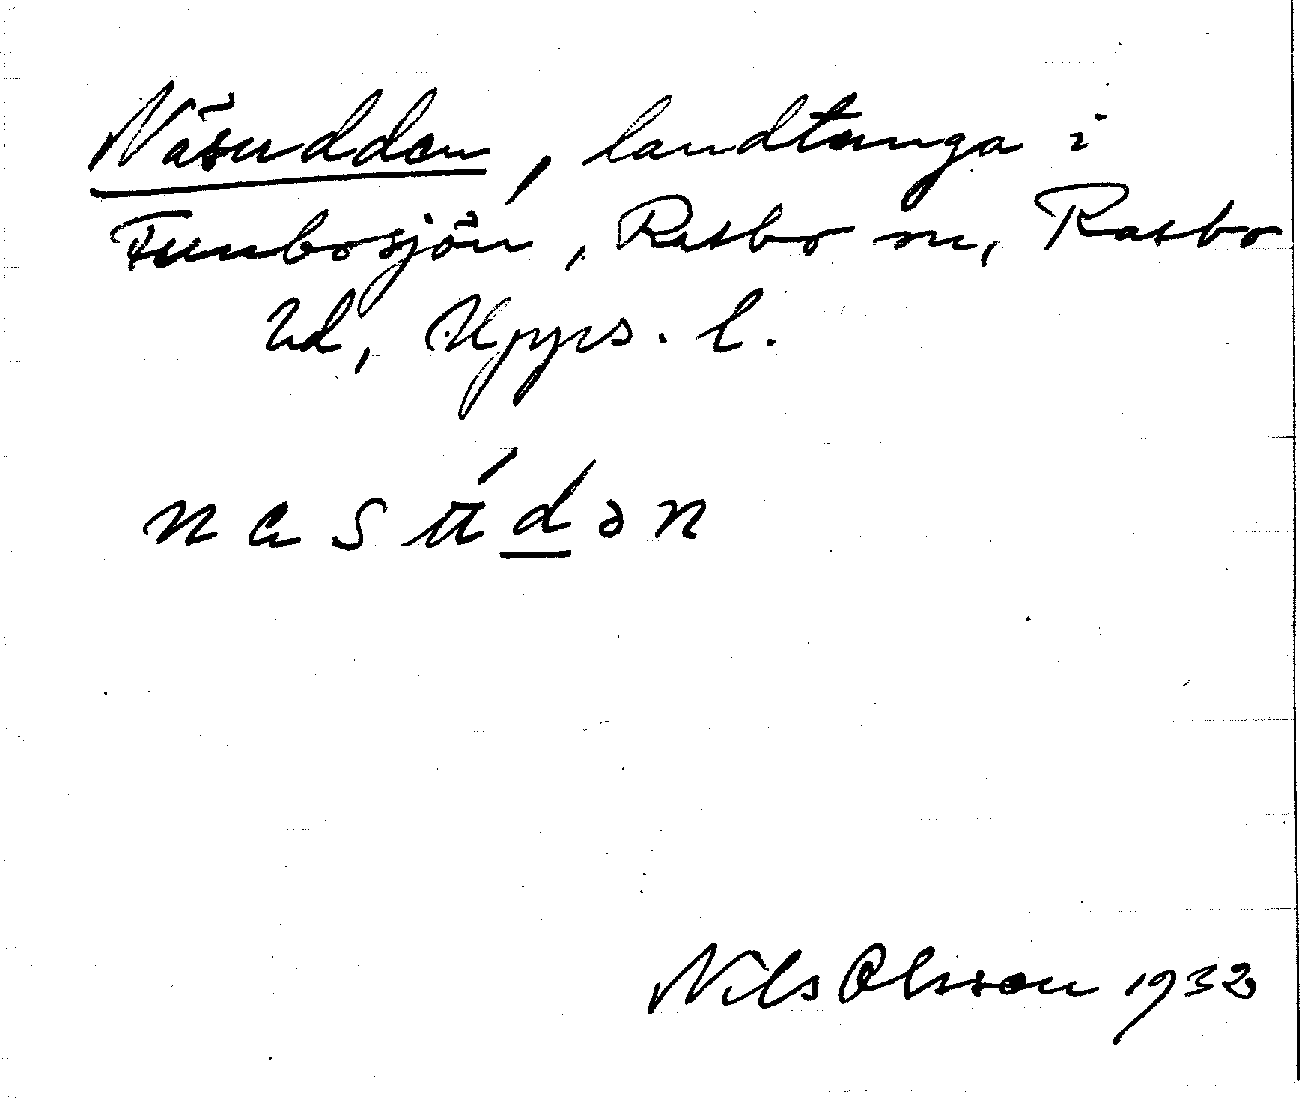 Näsudden, landtunga i
Funbosjön, Rasbo sn, Rasbo
hd, Upps. l.
Nils Olsson 1932